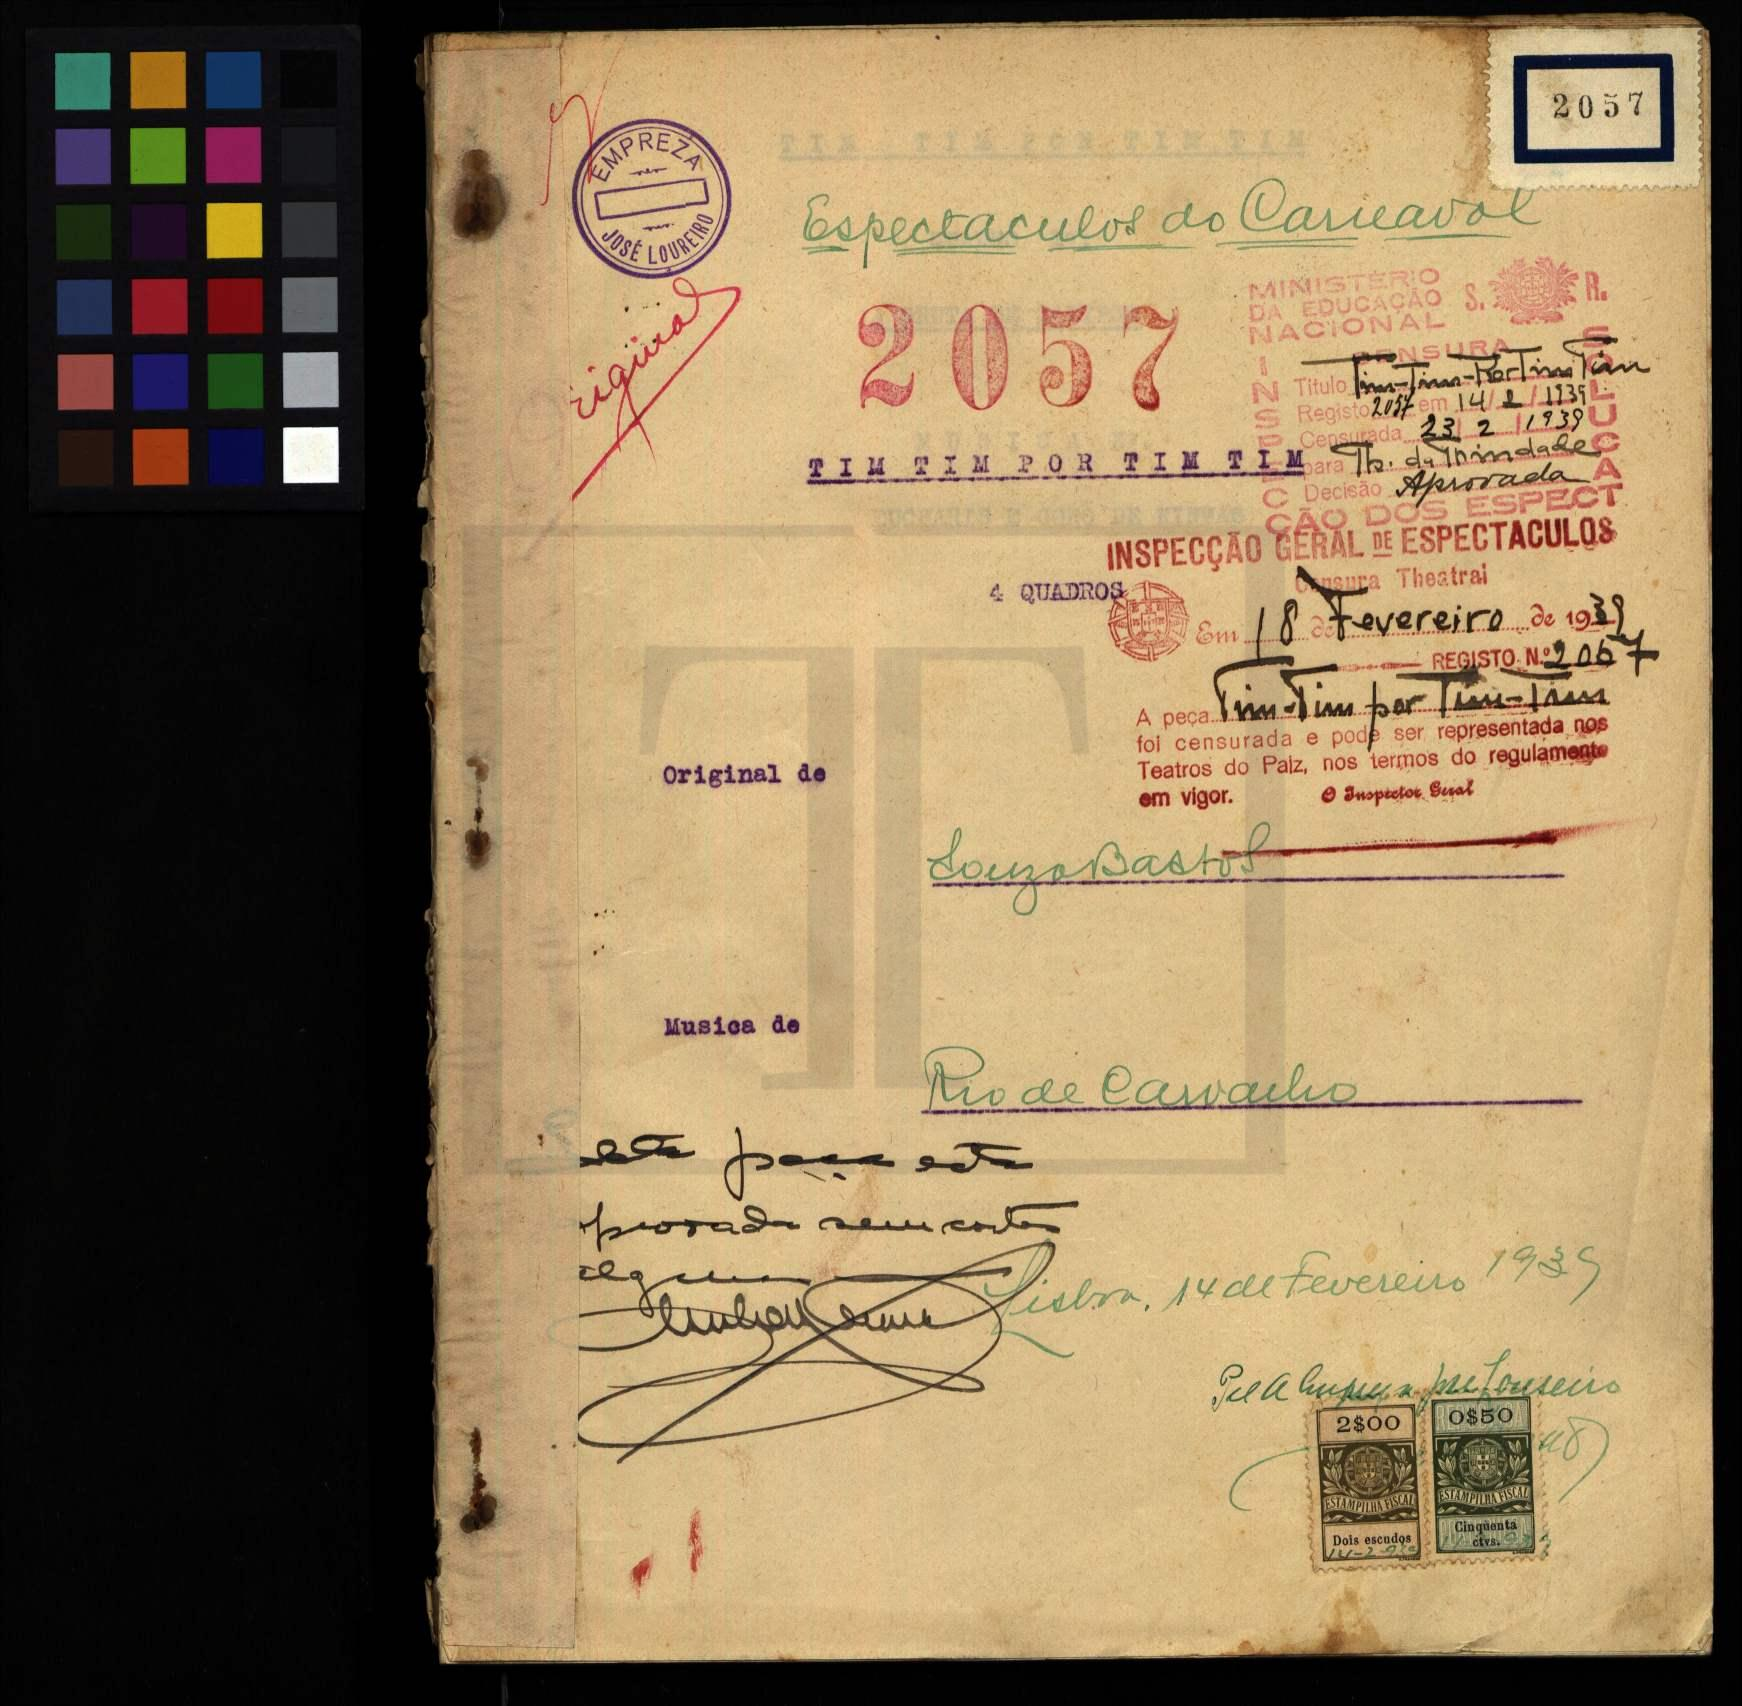 2057
EMPREZA
JOSÉ LOUREIRO
Espectaculos do Carnaval
2057
MINISTÉRIO
DA EDUCAÇÃO
NACIONAL
S. R.
CENSURA
Titulo Tim-Tim-Por Tim Tim
Registo 2057 em 14/2/1939
Censurada 23/2/1939
para Th. da Trindade
Decisão Aprovada
INSPECÇÃO DOS ESPECT
TIM TIM POR TIM TIM
INSPECÇÃO GERAL DE ESPECTACULOS
Censura Theatral
4 QUADROS
Em 18 de Fevereiro de 1939
REGISTO N.º 2057
A peça Tim-Tim por Tim-Tim
foi censurada e pode ser representada nos
Teatros do Paiz, nos termos do regulamento
em vigor. O Inspector Geral
Original de
Souza Bastos
Musica de
Rio de Carvalho
esta peça está
provada sem cortes
algum
Lisboa, 14 de Fevereiro 1939
Pel A Empreza José Loureiro
2$00
ESTAMPILHA FISCAL
Dois escudos
14-2-939
0$50
ESTAMPILHA FISCAL
Cinquenta
ctvs.